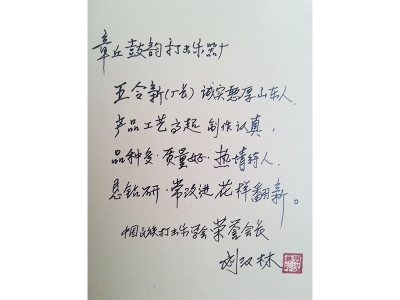 章丘鼓韵打击乐器厂
王令新(厂长) 诚实憨厚山东人.
产品工艺高超 制作认真,
品种多·质量好·热情待人.
恳钻研·常改进 花样翻新。
中国民族打击乐学会荣誉会长
刘汉林